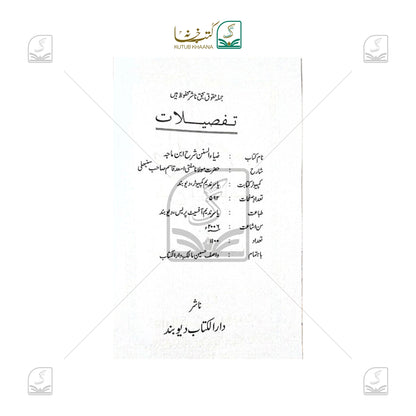 کتب خانہ
KUTUB KHAANA
جملہ حقوق بحق ناشر محفوظ ہیں
تفصیلات
نام کتاب : ضیاء السنن شرح ابن ماجہ
شارح : حضرت مولانا مفتی اسعد قاسم صاحب سنبھلی
کمپیوٹر کتابت : یاسر ندیم کمپیوٹر، دیوبند
تعداد صفحات : ۵۹۲
طباعت : یاسر ندیم آفسیٹ پریس، دیوبند
سن اشاعت : ۲۰۰۶ء
تعداد : ۱۱۰۰
باہتمام : واصف حسین مالک دارالکتاب
ناشر
دارالکتاب دیوبند